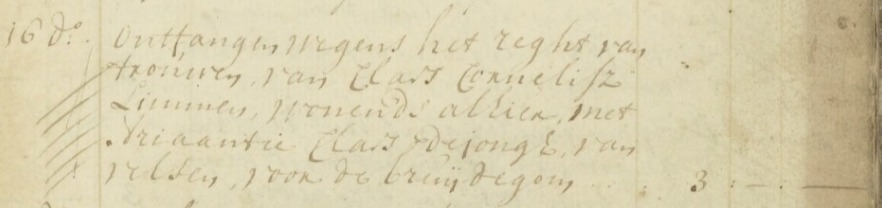 16 do. Ontfangen wegens het reght van
trouwen, van Claas Cornelisz
Limmen, wonende alhier, met
Ariaantie Claas de jongh, van
velsen, voor de bruijdegom ... 3:—:—